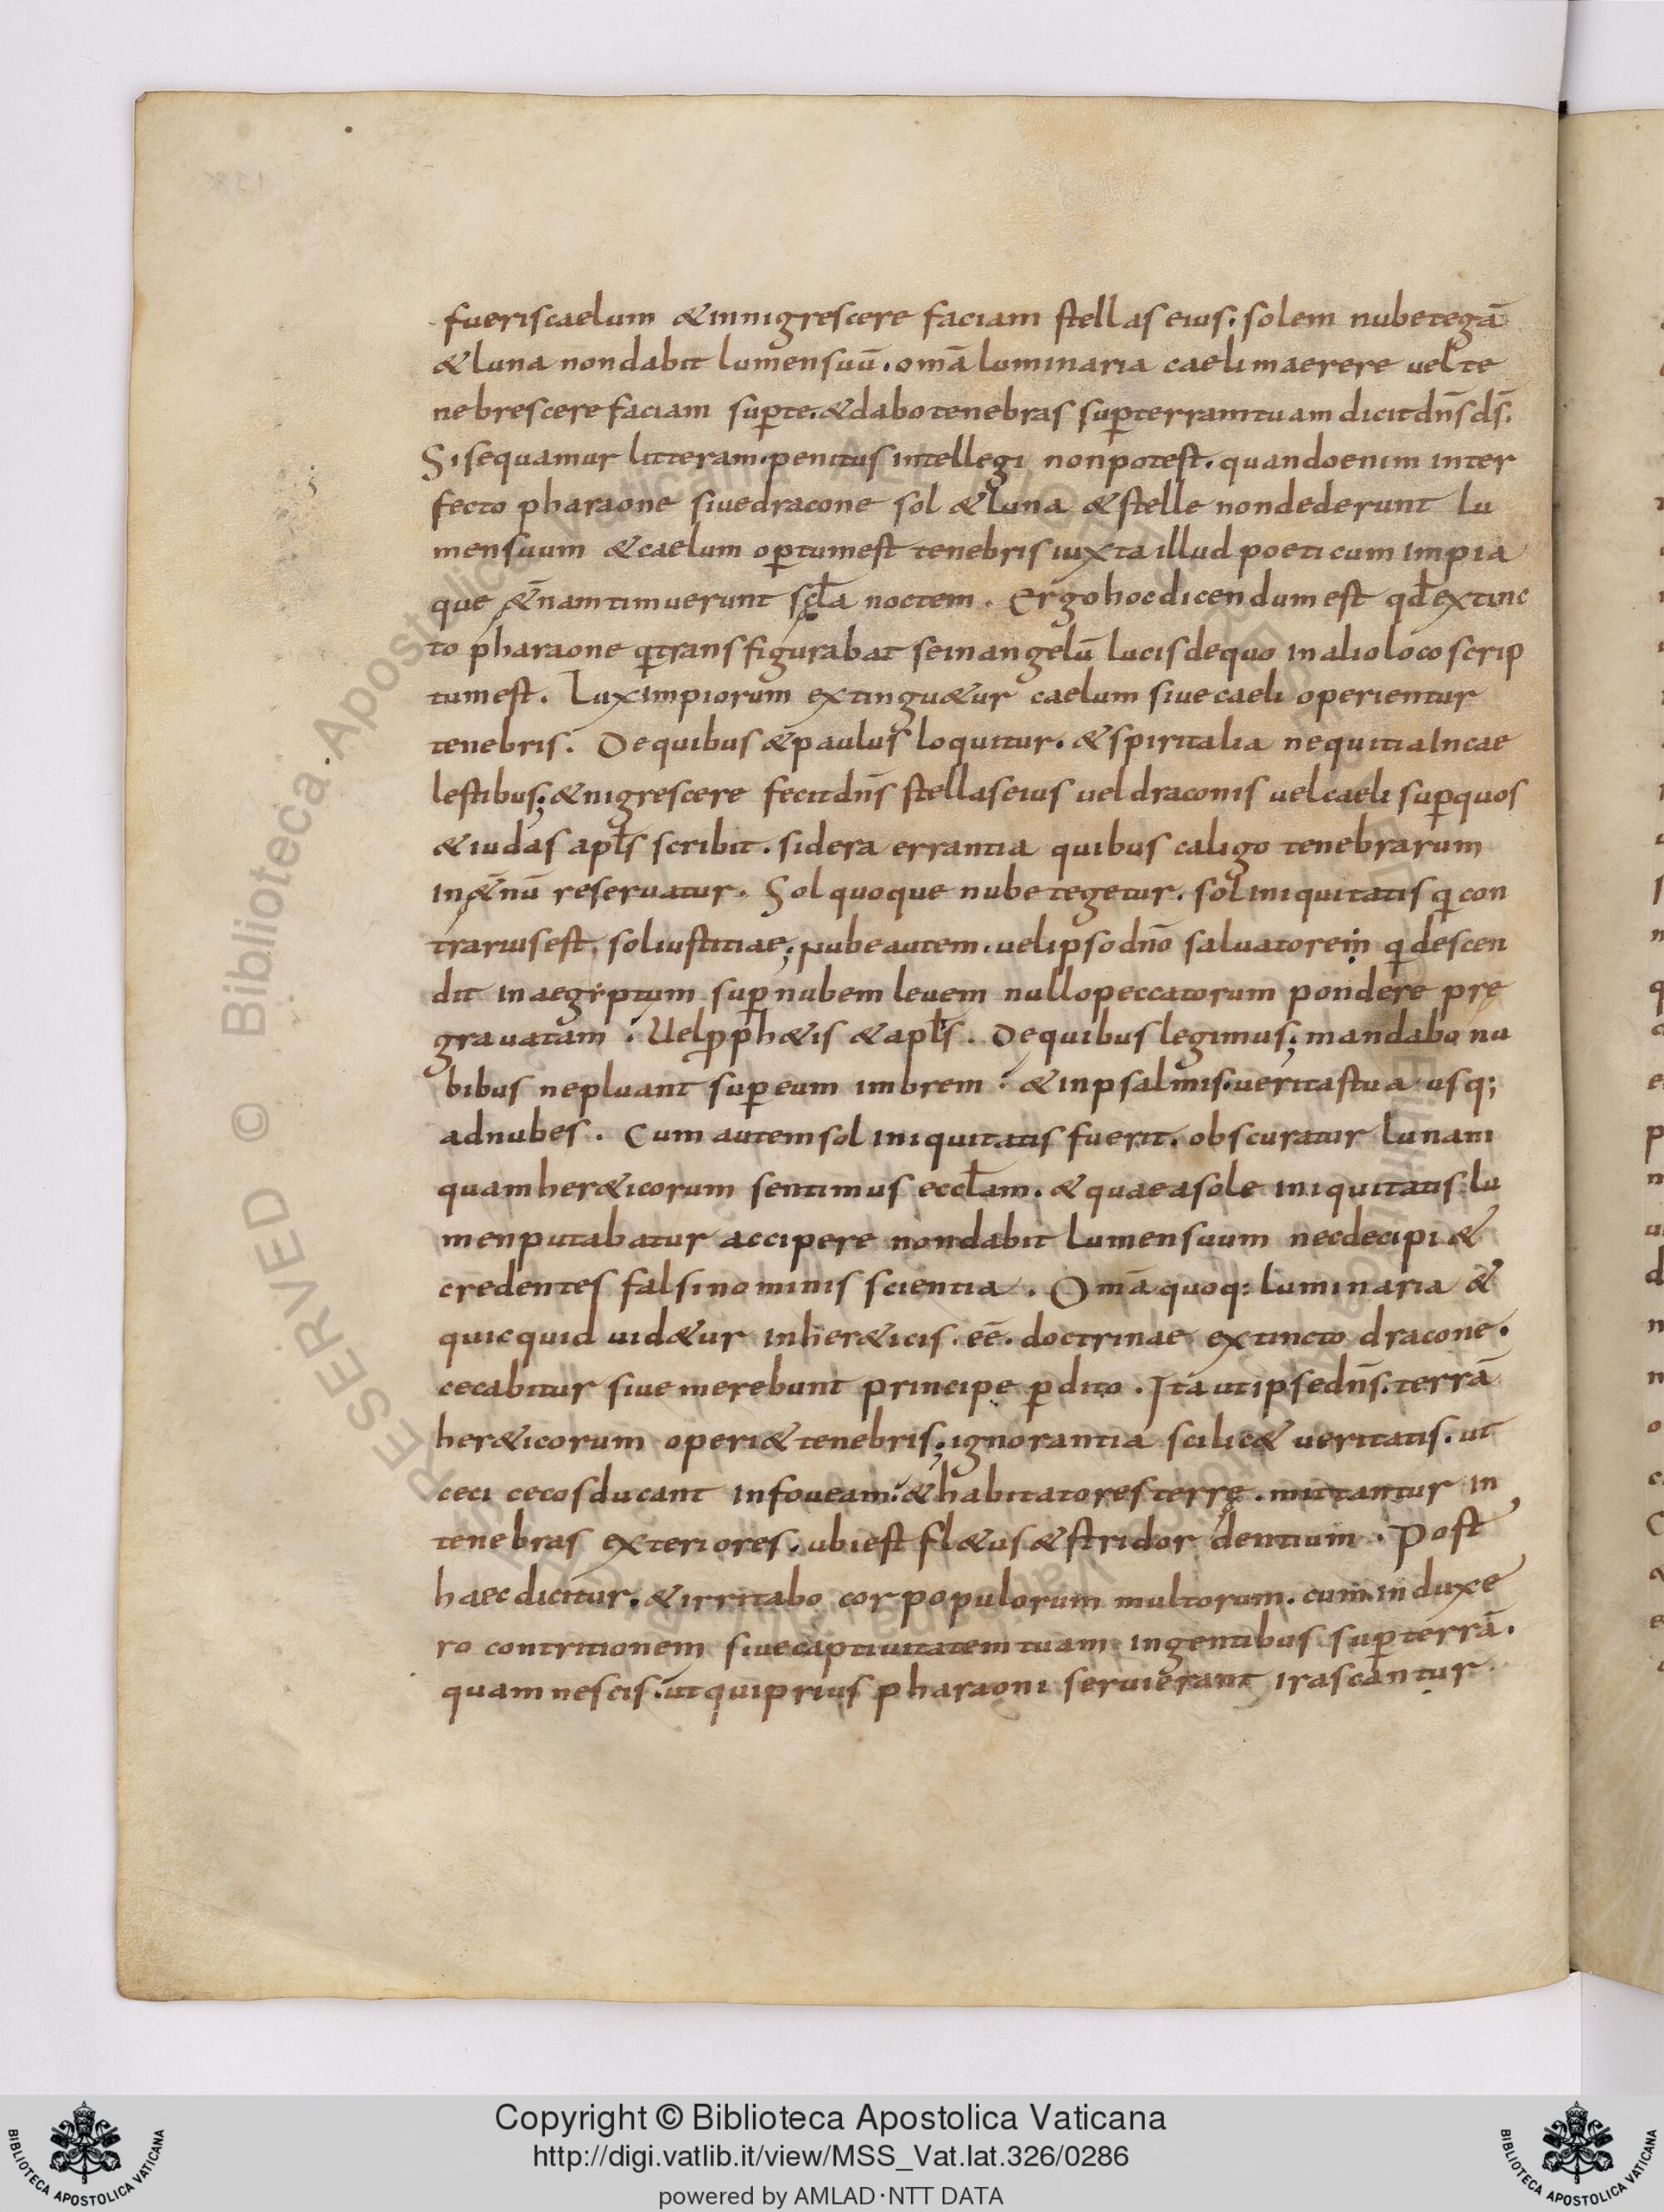 fueris caelum & innigrescere faciam stellas eius. solem nube tegā
& luna non dabit lumen suū. omā luminaria caeli maerere uel te
nebrescere faciam sup te. & dabo tenebras sup terram tuam dicit dn̄s ds̄.
Si sequamur litteram. penitus intellegi non potest. quando enim inter
fecto pharaone siue dracone sol & luna & stelle non dederunt lu
men suum & caelum optum est tenebris iuxta illud poeticum impia
que &̄nam timuerunt scl̄a noctem. Ergo hoc dicendum est qd̄ extinc
to pharaone qi transfigurabat se in angelū lucis de quo in alio loco scrip
tum est. Lux impiorum extingu&ur caelum siue caeli operientur
tenebris. De quibus & paulus loquitur. & spiritalia nequitia In cae
lestibus; & nigrescere fecit dn̄s stellas eius uel draconis uel caeli sup quos
& iudas apl̄s scribit. sidera errantia quibus caligo tenebrarum
in &̄nū reseruatur. Sol quoque nube tegetur. sol iniquitatis qi con
trarius est. sol iustitiae; nube autem. uel ipso dn̄o saluatorem qi descen
dit in aegiptum sup nubem leuem nullo peccatorum pondere pre
grauatam. Uel pph&is & apl̄s. De quibus legimus; mandabo nu
bibus ne pluant sup eum imbrem. & in psalmis. ueritas tua usq;
ad nubes. Cum autem sol iniquitatis fuerit. obscuratur lunam
quam her&icorum sentimus eccl̄am. & quae a sole iniquitatis lu
men putabatur accipere non dabit lumen suum nec decipi&
credentes falsi nominis scientia. Omā quoq: luminaria &
quicquid uid&ur in her&icis. eē. doctrinae extincto dracone.
cecabitur siue merebunt principe pdito. Ita ut ipse dn̄s. terrā
her&icorum operi& tenebris; ignorantia scilic& ueritatis. ut
ceci cecos ducant in foueam. & habitatores terrę. mittantur in
tenebras exteriores. ubi est fl&us & stridor dentium. Post
haec dicitur. & irritabo cor populorum multorum. cum induxe
ro contritionem siue captiuitatem tuam in gentibus sup terrā.
quam nescis. ut qui prius pharaoni seruierant irascantur
Copyright © Biblioteca Apostolica Vaticana
http://digi.vatlib.it/view/MSS_Vat.lat.326/0286
powered by AMLAD·NTT DATA
BIBLIOTECA APOSTOLICA VATICANA
BIBLIOTECA APOSTOLICA VATICANA